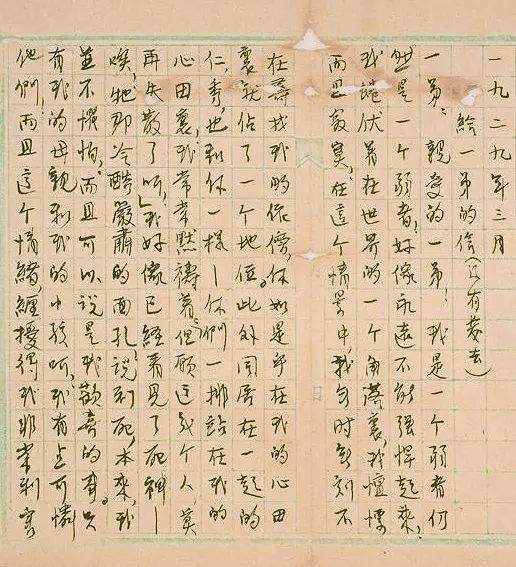 一九二九年三月
给一弟的信(没有发去)
一弟:親爱的一弟:我是一个弱者
然是一个弱者,好像永远不能强悍起来,
我蜷伏着在世界的一个角落裏,我懼慄
而且寂寞,在這个情景中,我时刻不
在尋找我的依傍,你如是乎在我的心田
裏就佔了一个地位。此外同居在一起的
仁,秀,也和你一樣—你们一排站在我的
心田裏,我常常默禱着,但願这几个人莫
再失散了呀!我好像已經看見了死神—
唉,牠那冷酷嚴肅的面孔,说到死,本来,我
並不懼怕,而且可以说是我歡喜的。只
有我的母親和我的小孩呵,我有点可憐
他们,而且這个情緒,纏擾得我非常利害